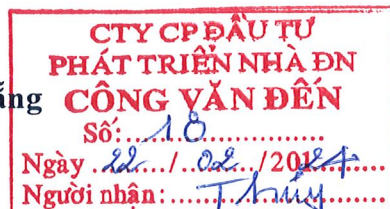 CTY CP ĐẦU TƯ
PHÁT TRIỂN NHÀ ĐN
ẵng CÔNG VĂN ĐẾN
Số:...18...
Ngày .22.../.02.../2024...
Người nhận:...Thúy...